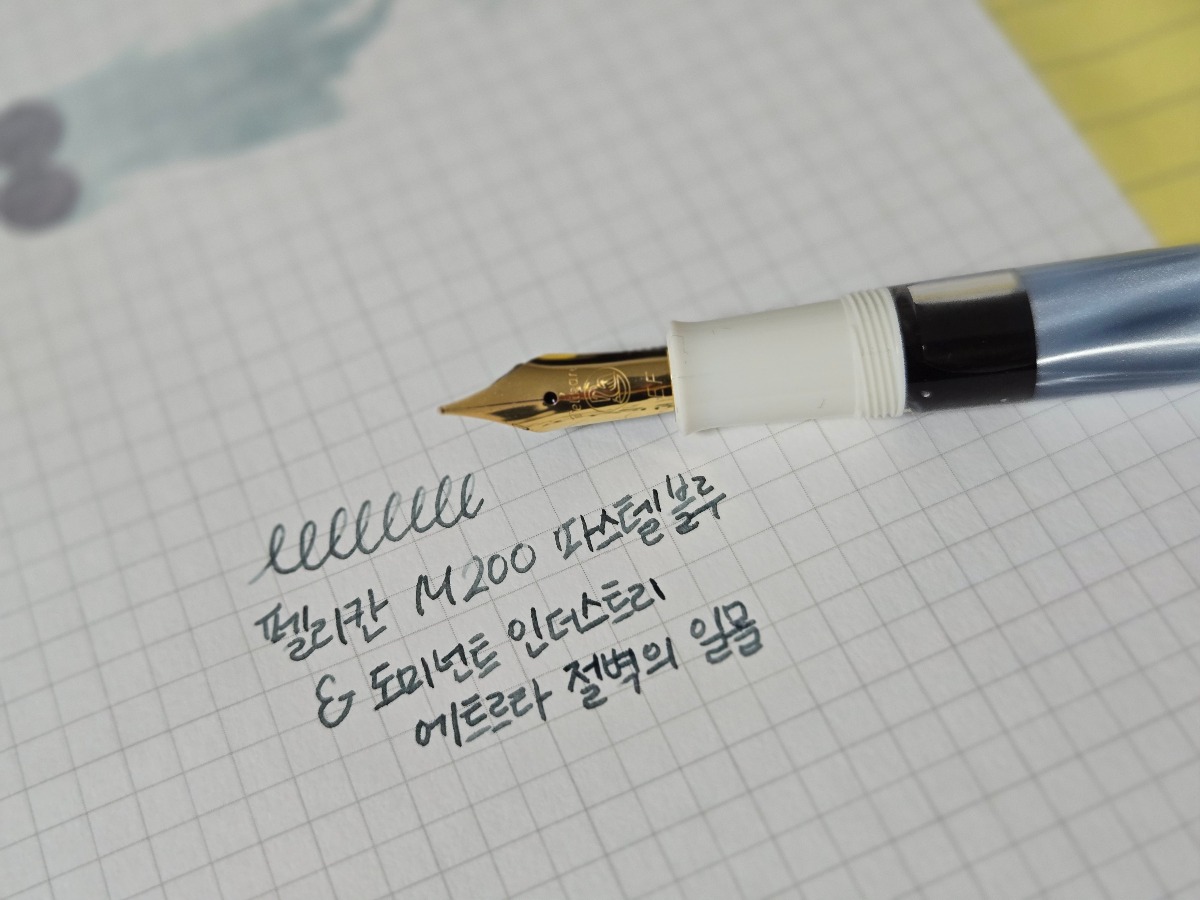 Pelikan
EF
펠리칸 M200 파스텔블루
& 도미넌트 인더스트리
에트르타 절벽의 일몰